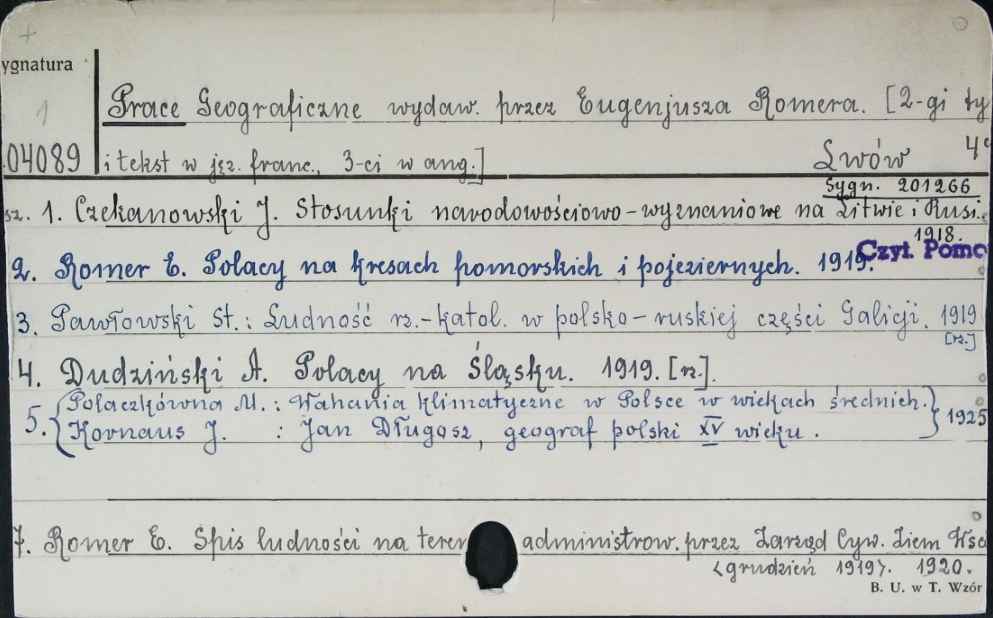 ygnatura
1
Prace Geograficzne wydaw. przez Eugenjusza Romera. [2-gi ty
04089 i tekst w jęz. franc., 3-ci w ang.] Lwów 4°
Sygn. 201266
sz. 1. Czekanowski J. Stosunki narodowościowo-wyznaniowe na Litwie i Rusi.
1918.
2. Romer E. Polacy na kresach pomorskich i pojeziernych. 1919. Czyt. Pomo
3. Pawłowski St.: Ludność rz.-katol. w polsko-ruskiej części Galicji. 1919
[rz.]
4. Dudziński A. Polacy na Śląsku. 1919. [rz.].
5. {Polaczkówna M.: Wahania klimatyczne w Polsce w wiekach średnich.} 1925
Kornaus J. : Jan Długosz, geograf polski XV wieku.
7. Romer E. Spis ludności na teren administrow. przez Zarząd Cyw. Ziem Wsc
<grudzień 1919>. 1920.
B. U. w T. Wzór